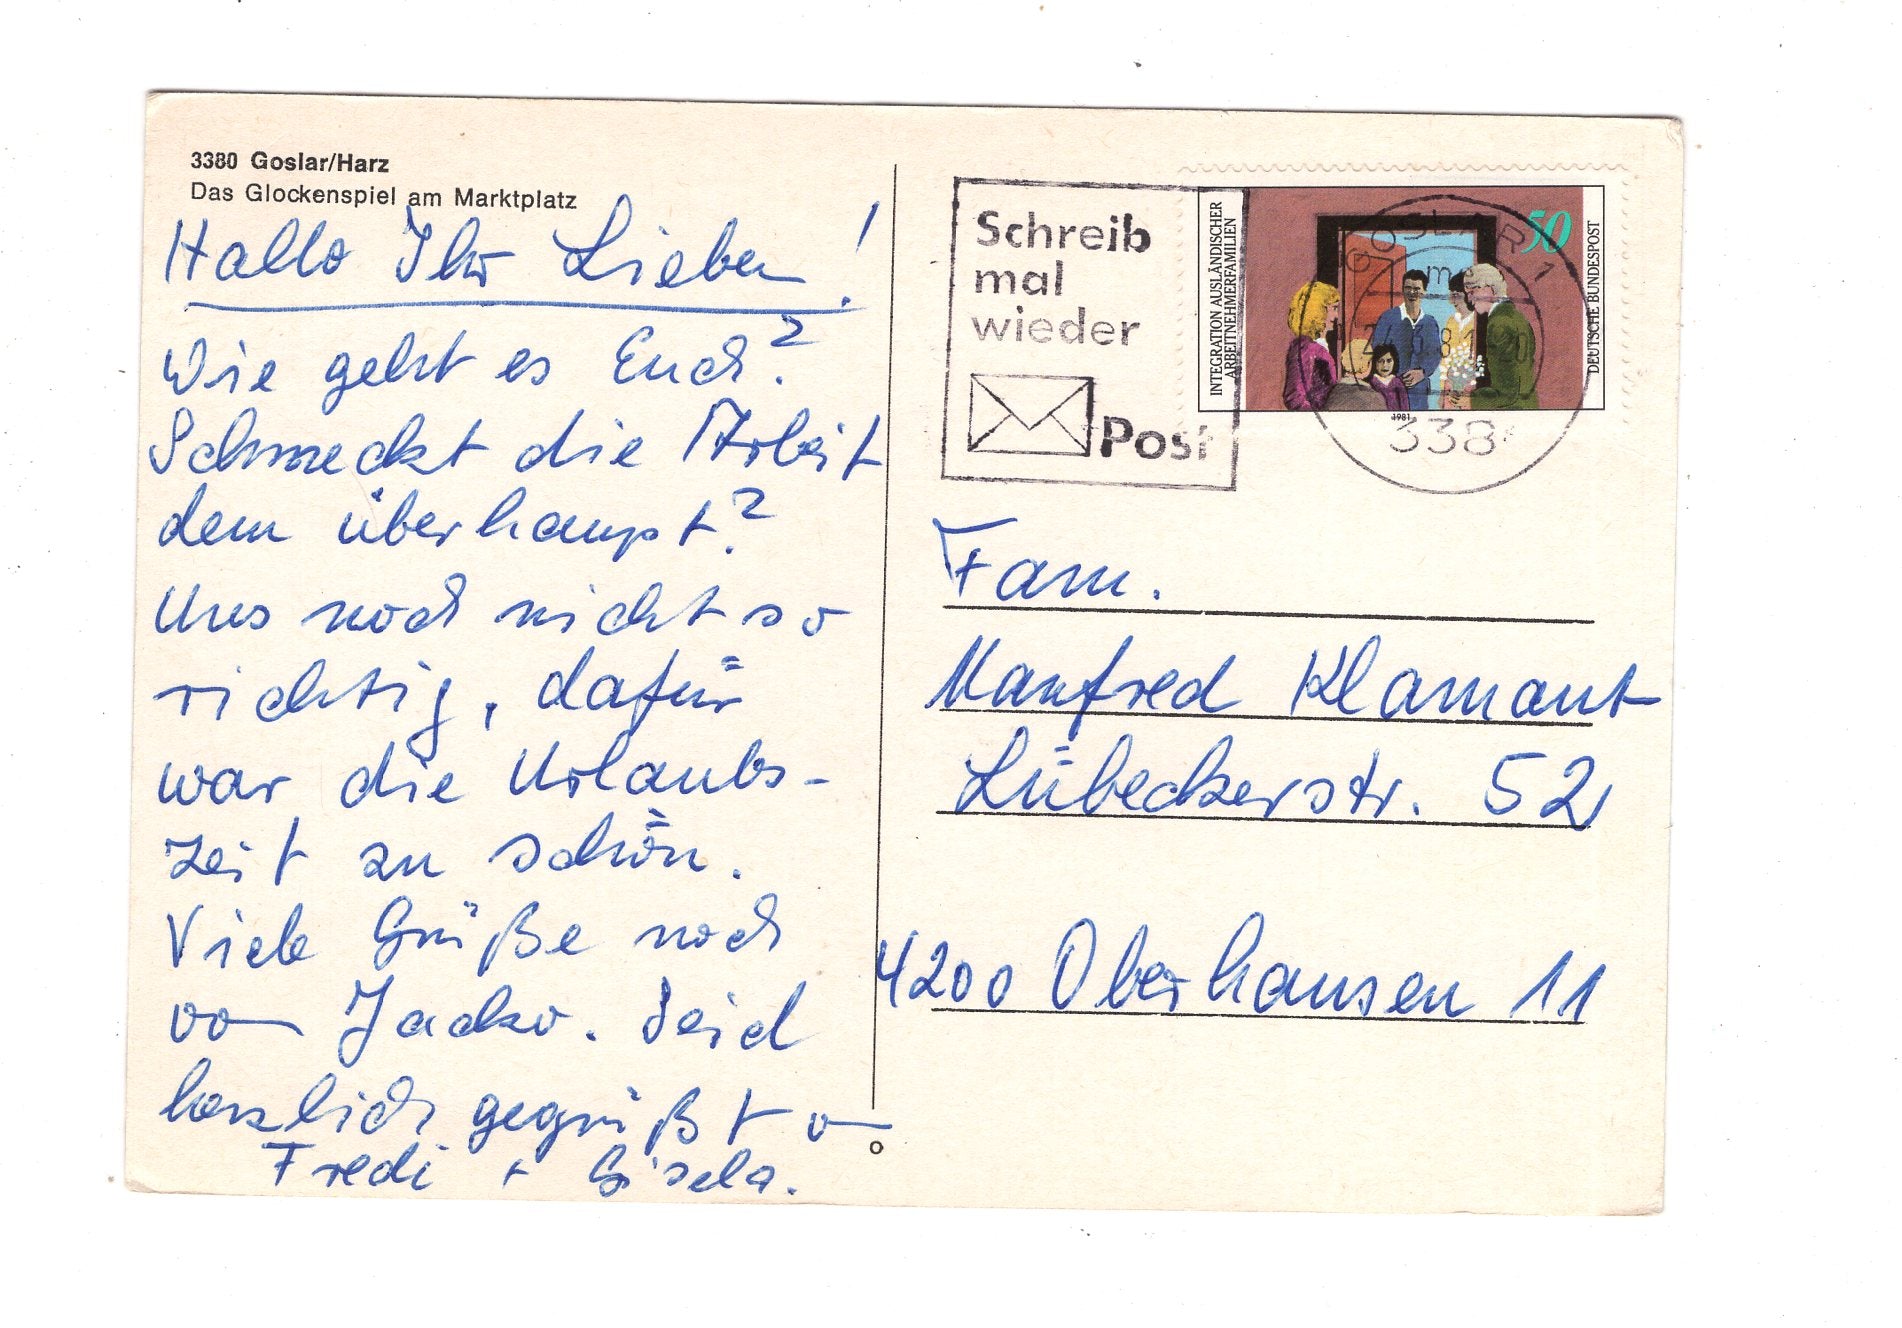 3380 Goslar/Harz
Das Glockenspiel am Marktplatz
Hallo Ihr Lieben!
Wie geht es Euch?
Schmeckt die Arbeit
denn überhaupt?
Uns noch nicht so
richtig, dafür
war die Urlaubs-
zeit zu schön.
Viele Grüße noch
von Jacko. Seid
herzlich gegrüßt von
Fredi + Gisela.
Schreib
mal
wieder
Post
INTEGRATION AUSLÄNDISCHER
ARBEITNEHMERFAMILIEN
50
DEUTSCHE BUNDESPOST
1981
GOSLAR 1
338
Fam.
Manfred Klamant
Lübeckerstr. 52
4200 Oberhausen 11